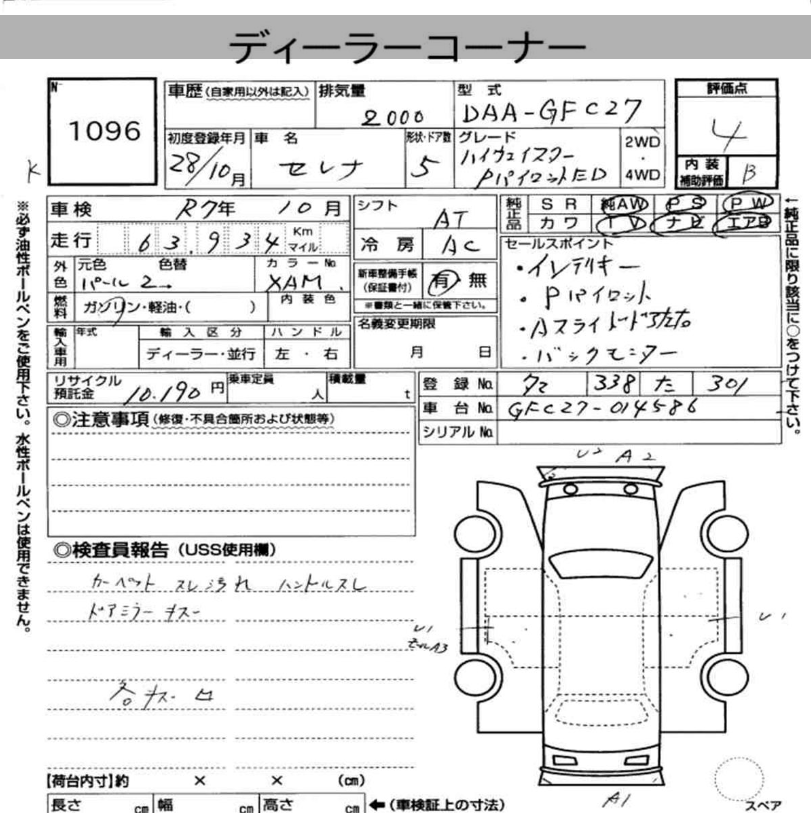 ディーラーコーナー
No 1096
車歴 (自家用以外は記入)
排気量 2000
型式 DAA-GFC27
評価点 4
内装補助評価 B
初度登録年月 28/10月
車名 セレナ
形状・ドア数 5
グレード ハイウェイスター PパイロットED
2WD・4WD
K
※必ず油性ボールペンをご使用下さい。水性ボールペンは使用できません。
車検 R7年 10月
走行 63,934 Km マイル
外色 元色 パール2 色替
カラーNo XAM
燃料 ガソリン・軽油・( )
内装色
輸入車用 年式 輸入区分 ディーラー・並行 ハンドル 左・右
シフト AT
冷房 AC
新車整備手帳(保証書付) 有・無
※書類と一緒に保管下さい。
名義変更期限 月 日
純正品 SR 純AW PS PW
カワ TV ナビ エアB
セールスポイント
・インテリキー
・Pパイロット
・バックモニター
←純正品に限り該当に○をつけて下さい。
リサイクル預託金 10,190円
乗車定員 人
積載量 t
登録No. 338 た 301
車台No. GFC27-014586
シリアルNo.
◎注意事項 (修復・不具合箇所および状態等)
◎検査員報告 (USS使用欄)
カーペット スレ汚れ ハンドルスレ
ドアミラーキズ
各キズ凹
U2 A2
U1
A3
U1
A1
スペア
【荷台内寸】約 × × (cm)
長さ cm 幅 cm 高さ cm ←(車検証上の寸法)